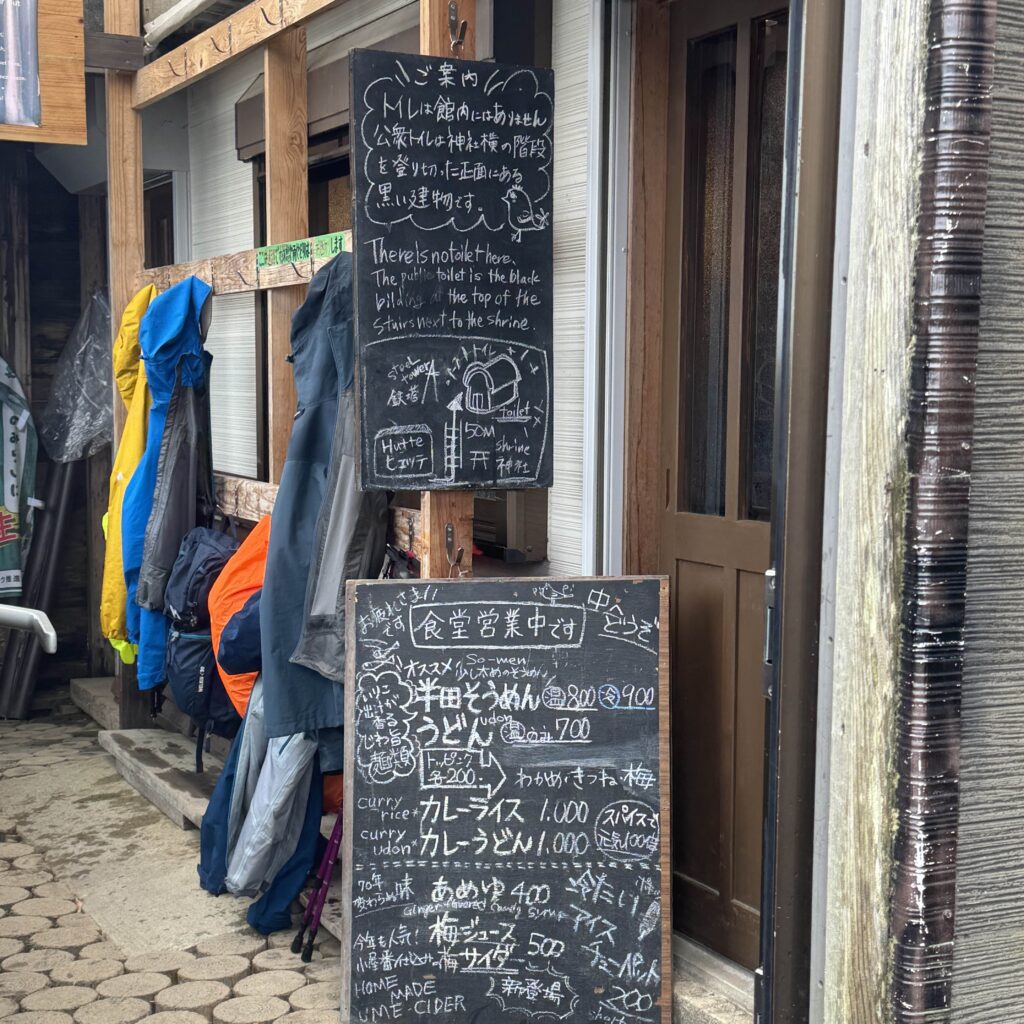 ご案内
トイレは館内にはありません
公衆トイレは神社横の階段
を登り切った正面にある
黒い建物です。
There is no toilet here.
The public toilet is the black
bilding at the top of the
stairs next to the shrine.
steel
tower
鉄塔
トイレ
toilet
50M
Hutte
ヒュッテ
shrine
神社
お疲れさま
です
食堂営業中です
中へどうぞ
オススメ
So-men
少し太めのそうめん
半田そうめん 温800 冷900
うどん udon 温のみ 700
いりこ
出汁が
香る
麺類
トッピング
各200
わかめ・きつね・梅
curry
rice* カレーライス 1.000
curry
udon* カレーうどん 1.000
スパイスで
元気100倍
70年
変わらぬ味
あめゆ 400
Ginger flavored candy syrup
今年も人気!
小屋番仕込みの梅
梅ジュース
サイダー
500
HOME
MADE
UME-CIDER
新登場
冷たい
アイス
チューペット
200